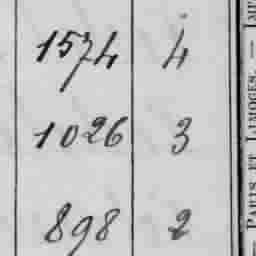 1574 4
1026 3
898 2
PARIS ET LIMOGES. — IM